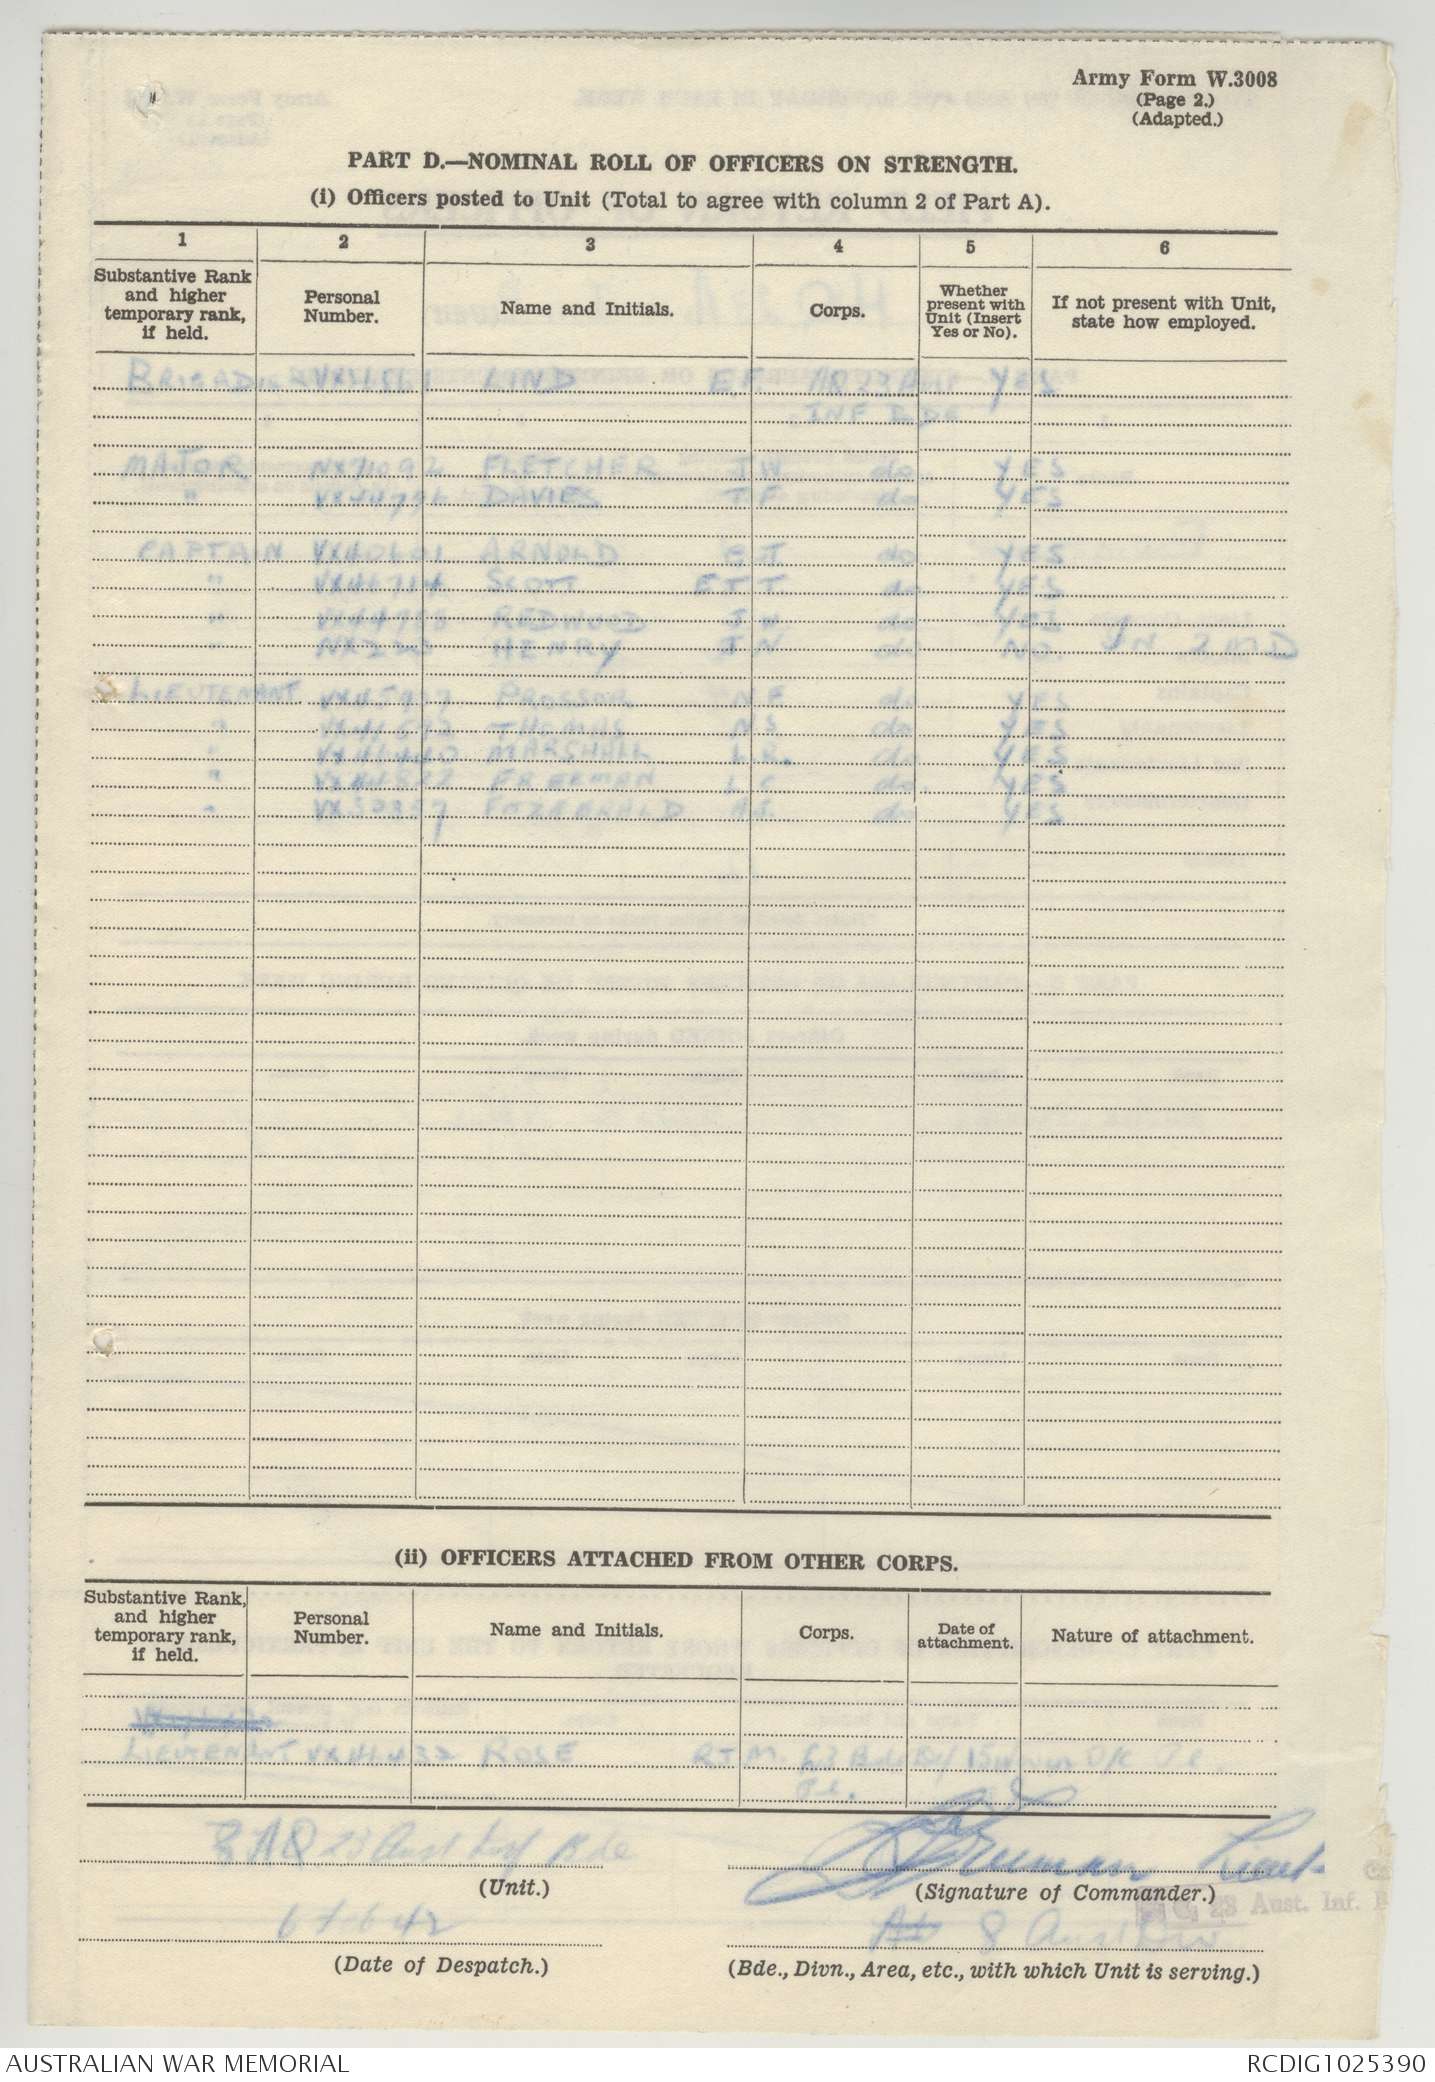 Army Form W.3008
(Page 2.)
(Adapted.)
PART D.—NOMINAL ROLL OF OFFICERS ON STRENGTH.
(i) Officers posted to Unit (Total to agree with column 2 of Part A).
1 2 3 4 5 6
Substantive Rank and higher temporary rank, if held.
Personal Number.
Name and Initials.
Corps.
Whether present with Unit (Insert Yes or No).
If not present with Unit, state how employed.
BRIGADIER LIND E.F. YES
INF BDE
MAJOR NX71092 FLETCHER J W do. YES
" VX44796 DAVIES T F do YES
CAPTAIN VX40601 ARNOLD E J do YES
" VX46714 SCOTT E T T do YES
" REDWOOD J W. do YES
" HENRY J N do NO.
LIEUTENANT PROSSOR N F do YES
" THOMAS N S do YES
" MARSHALL L.R. do. YES
" FREEMAN L C do. YES
" FITZGERALD A J. do YES
(ii) OFFICERS ATTACHED FROM OTHER CORPS.
Substantive Rank, and higher temporary rank, if held.
Personal Number.
Name and Initials.
Corps.
Date of attachment.
Nature of attachment.
LIEUTENANT ROSE R J M.
23 Aust Inf Bde
(Unit.)
Freeman Lieut
(Signature of Commander.)
23 Aust. Inf.
(Date of Despatch.)
8 Aust Div
(Bde., Divn., Area, etc., with which Unit is serving.)
AUSTRALIAN WAR MEMORIAL
RCDIG1025390